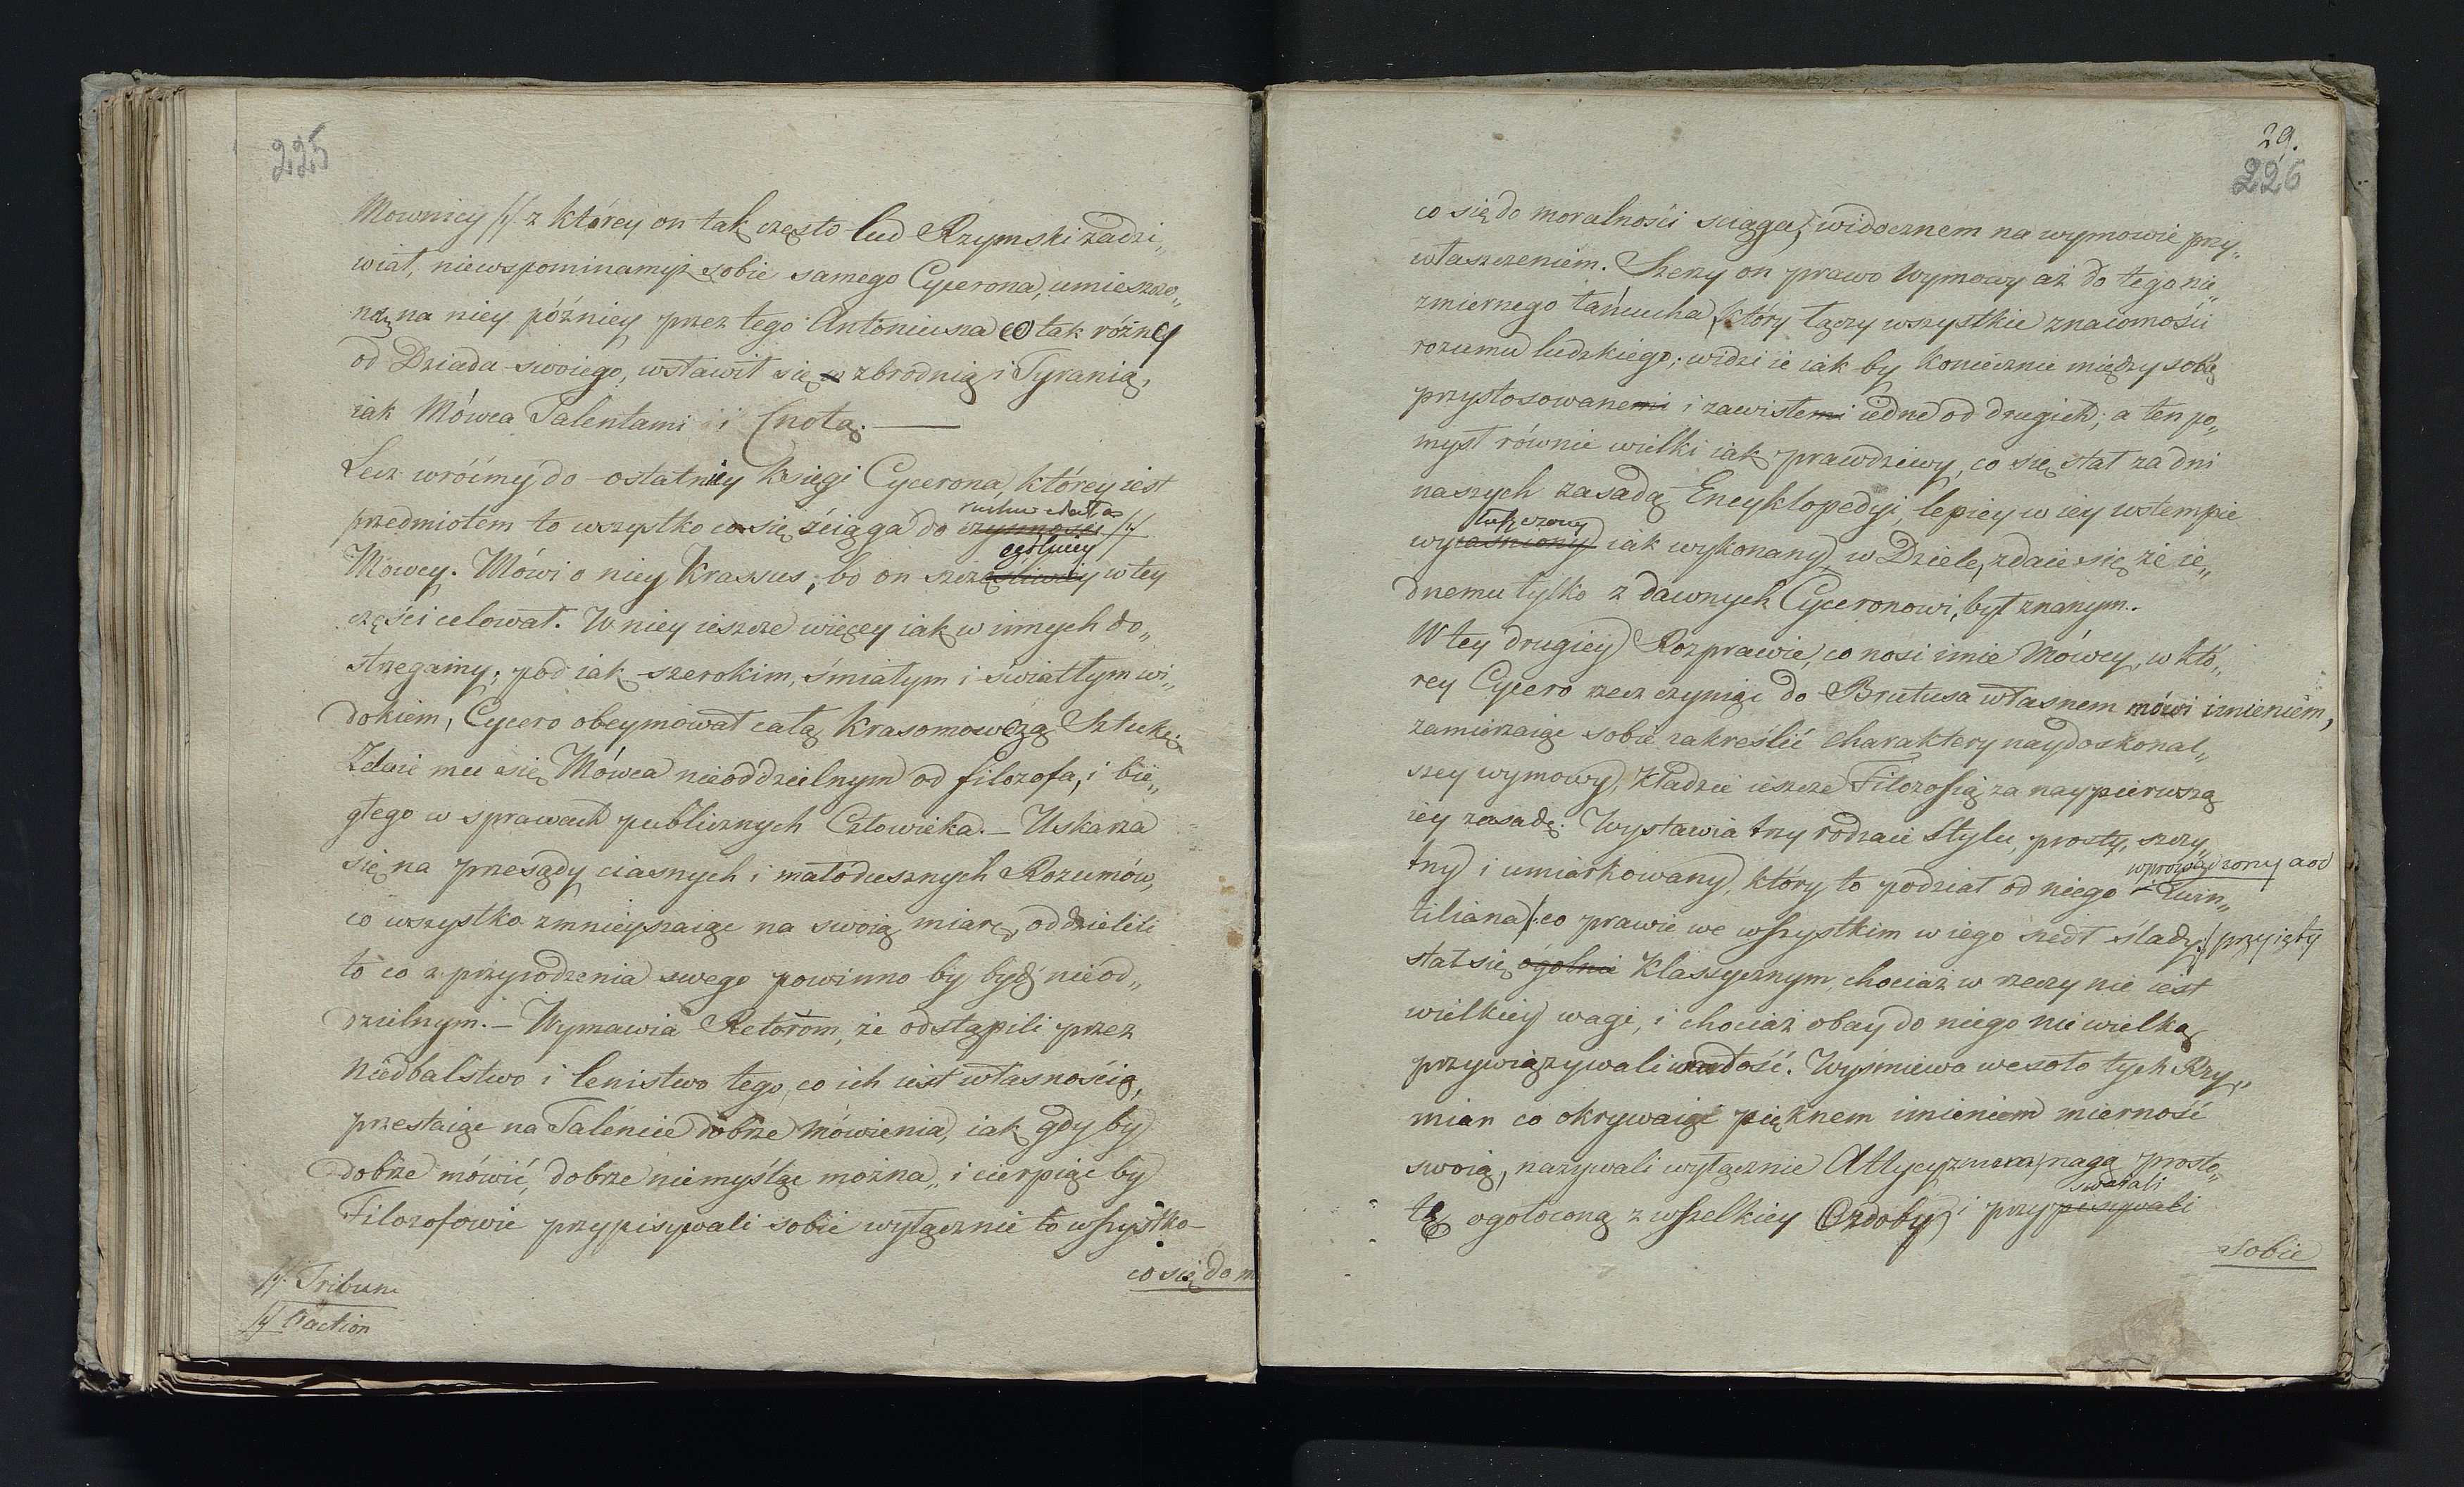 225
Mownicy /./ z którey on tak często lud Rzymski zadzi„
wiał, niewspominamyż sobie samego Cycerona, umieszczo„
na na niey późniey przez tego Antoniusza co tak różny
od Dziada swoiego, wsławił się zbrodnią i Tyranią,
iak Mówca Talentami i Cnotą. —
Lecz wróćmy do ostatniey Księgi Cycerona, którey iest
ruchu ciała
przedmiotem to wszystko co się ściąga do czynności /./
ogólniey
Mowcy. Mówi o niey Krassus, bo on szczęśliwiey w tey
części celował. W niey ieszcze więcey iak w innych do„
strzegamy, pod iak szerokim, śmiałym i światłym wi„
dokiem, Cycero obeymował całą Krasomowczą Sztukę.
Zdaie mu się Mówca nieoddzielnym od filozofa, i bie„
głego w sprawach publicznych Człowieka. — Uskarza
się na przesądy ciasnych i małodusznych Rozumów,
co wszystko zmnieyszaiąc na swoią miarę, oddzielili
to co z przyrodzenia swego powinno by bydź nieod„
dzielnym. — Wymawia Retorom, że odstąpili przez
Niedbalstwo i lenistwo tego, co ich iest własnością,
przestaiąc na Talencie dobrze mówienia, iak gdy by
dobrze mówić, dobrze niemyśląc można, i cierpiąc by
Filozofowie przypisywali sobie wyłącznie to wszystko
co się do m
/./ Tribune
/./ l'action
29.
226
co się do moralności sciąga, widocznem na wymowie przy„
właszczeniem. Szerzy on prawo Wymowy aż do tego nie„
zmiernego łańcucha, który łączy wszystkie znaiomości
rozumu ludzkiego; widzi ie iak by koniecznie między sobą
przystosowanemi i zawisłemi iedne od drugich; a ten po„
mysł równie wielki iak prawdziwy, co się stał za dni
naszych zasadą Encyklopedyi, lepiey w iey wstempie
wyiaśniony iak wykonany w Dziele, zdaie się że ie„
dnemu tylko z dawnych Cyceronowi, był znanym.
W tey drugiey Rozprawie, co nosi imie Mówcy, w któ„
rey Cycero rzecz czyniąc do Brutusa własnem mówi imieniem,
zamierzaiąc sobie zakreślić charaktery naydoskonal„
szey wymowy, kładzie ieszcze Filozofią za naypierwszą
iey zasadę. Wystawia trzy rodzaie Stylu, prosty, szczy„
wprowadzony a od
tny i umiarkowany, który to podział od niego i Quin„
tiliana /: co prawie we wszystkim w iego szedł ślady :/ przyięty
stał się ogolnie Klassycznym, chociaż w rzeczy nie iest
wielkiey wagi, i chociaż obay do niego niewielką
przywiązywali wartość. Wyśmiewa wesoło tych Rzy„
mian co okrywaiąc pięknem imieniem mierność
swoią, nazywali wyłącznie Attycyzmem, nagą prosto„
swaiali
tę ogołoconą z wszelkiey Ozdoby i przypisywali
sobie